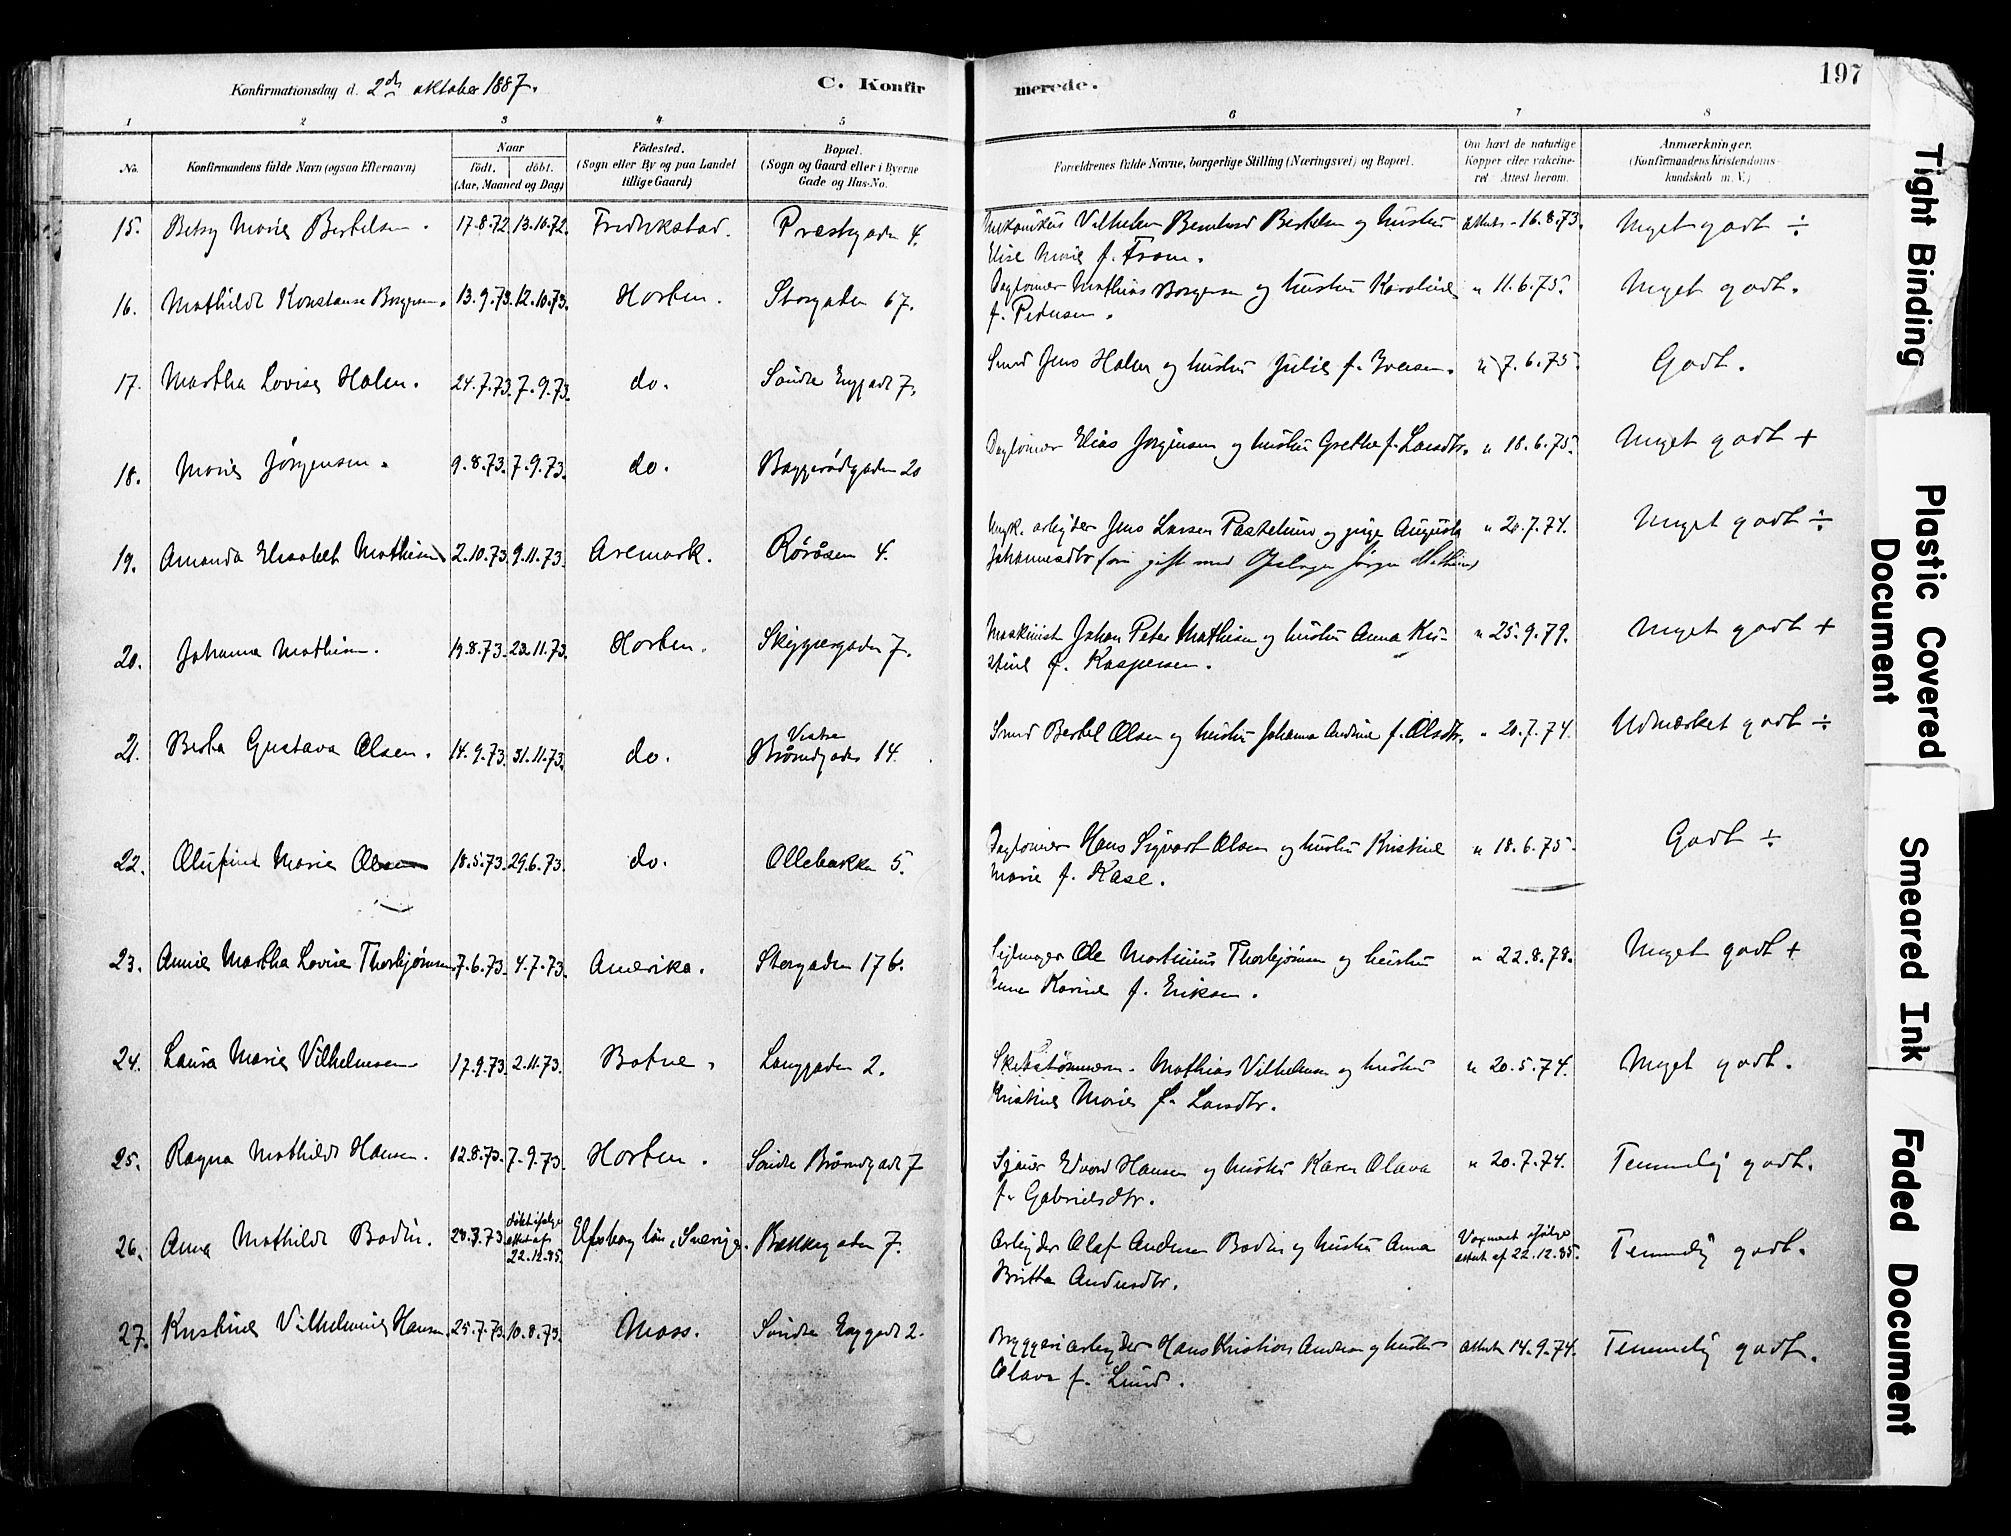 Konfirmationsdag d. 2den oktober 1887.
C. Konfirmerede.
197
1 2 3 4 5 6 7 8
No. Konfirmandens fulde Navn (ogsaa Efternavn) Naar født. døbt. (Aar, Maaned og Dag) Födested. (Sogn eller By og paa Landet tillige Gaard) Bopæl. (Sogn og Gaard eller i Byerne Gade og Hus-No. Forældrenes fulde Navne, borgerlige Stilling (Næringsvei) og Bopæl. Om havt de naturlige Kopper eller vakcineret Attest herom. Anmærkninger. (Konfirmandens Kristendomskundskab m. V.)
15. Betsy Marie Bertelsen. 17.8.72 13.10.72. Fredrikstad. Prestegaden 4. Vilhelm Bernhard Bertelsen og hustru attest 16.8.73. Meget godt ÷
Elise Marie f. From.
16. Mathilde Konstanse Borgersen. 13.9.73. 12.10.73. Horten. Storgaden 67. Daglønner Mathias Borgersen og hustru Karoline " 11.6.75. Meget godt.
f. Petersen.
17. Martha Lovise Halen. 24.7.73. 7.9.73. do. Søndre Enggade 7. Smed Jens Halen og hustru Julie f. Iversen. " 7.6.75. Godt.
18. Marie Jørgensen. 9.8.73. 7.9.73. do. Baggerødgaden 20 Daglønner Elias Jørgensen og hustru Grethe f. Larsdtr. " 18.6.75. Meget godt +
19. Amanda Elisabet Mathisen 2.10.73. 9.11.73. Aremark. Røråsen 4. arbejder Jens Larsen og pige Augusta " 20.7.74. Meget godt ÷
Johannesdtr gift med Jørgen Mathisen
20. Johanna Mathisen. 19.8.73. 23.11.73. Horten. Skippergaden 7. Maskinist Johan Peter Mathisen og hustru Anna Kri- " 25.9.79. Meget godt +
stine f. Kaspersen.
21. Berta Gustava Olsen. 14.9.73. 31.11.73. do. Vestre Brøndgade 14. Smed Bertel Olsen og hustru Johanna Andrine f. Olsdtr. " 20.7.74. Udmærket godt ÷
22. Olufine Marie Olsen 18.5.73. 29.6.73. do. Ollebakken 5. Daglønner Hans Sigvart Olsen og hustru Kristine " 18.6.75. Godt ÷
Marie f. Kase.
23. Annie Martha Lovise Thorbjørnsen. 7.6.73. 4.7.73. Amerika. Storgaden 176. Ole Martinius Thorbjørnsen og hustru " 22.8.78. Meget godt +
Anne Karine f. Eriksen.
24. Laura Marie Vilhelmsen 17.9.73. 2.11.73. Botne. Langgaden 2. Skibstømmerm. Mathias Vilhelmsen og hustru " 20.5.74. Meget godt.
Kristine Marie f. Larsdtr.
25. Ragna Mathilde Hansen. 12.8.73. 7.9.73. Horten. Søndre Brøndgade 7 Sjauer Edvard Hansen og hustru Karen Olava " 20.7.74. Temmelig godt.
f. Gabrielsdtr.
26. Anna Mathilde Bodin. 28.3.73 døbt ifølge attest af 22.12.85. Elfsborg län, Sverige. Bækkegaden 7. Arbejder Olaf Andersen Bodin og hustru Anna Vaxineret ifølge attest af 22.12.85. Temmelig godt.
Britta Andersdtr.
27. Kristine Vilhelmine Hansen. 25.7.73. 10.8.73. Moss. Søndre Enggade 2. Bryggeriarbejder Hans Kristian Andersen og hustru attest 14.9.74. Temmelig godt.
Olava f. Lund.
Tight Binding
Plastic Covered Document
Smeared Ink
Faded Document